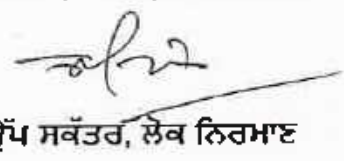 ਉੱਪ ਸਕੱਤਰ, ਲੋਕ ਨਿਰਮਾਣ